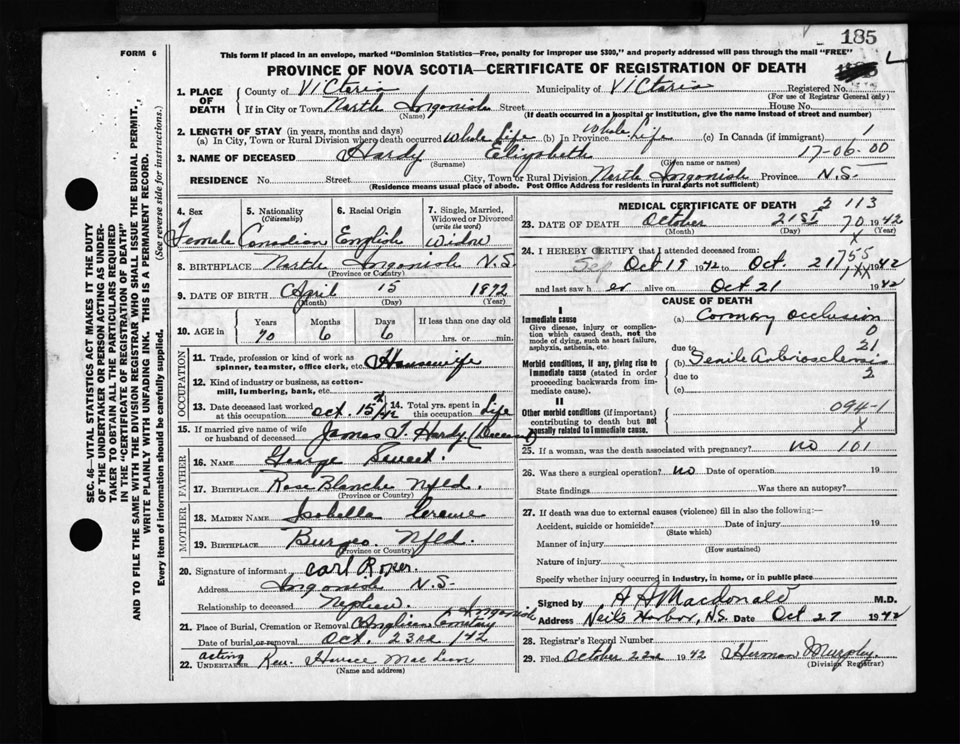 185
FORM 6
This form if placed in an envelope, marked "Dominion Statistics—Free, penalty for improper use $300," and properly addressed will pass through the mail "FREE"
PROVINCE OF NOVA SCOTIA—CERTIFICATE OF REGISTRATION OF DEATH
1. PLACE OF DEATH County of Victoria Municipality of Victoria Registered No.
(For use of Registrar General only)
If in City or Town North Ingonish Street House No.
(Name) (If death occurred in a hospital or institution, give the name instead of street and number)
2. LENGTH OF STAY (in years, months and days)
(a) In City, Town or Rural Division where death occurred Whole Life (b) In Province Whole Life (c) In Canada (if immigrant) 1
3. NAME OF DECEASED Hardy Elizabeth 17-06-00
(Surname) (Given name or names)
RESIDENCE No. Street City, Town or Rural Division North Ingonish Province N.S.
(Residence means usual place of abode. Post Office Address for residents in rural parts not sufficient)
4. Sex 5. Nationality (Citizenship) 6. Racial Origin 7. Single, Married, Widowed or Divorced (write the word)
Female Canadian English Widow
8. BIRTHPLACE North Ingonish N.S.
(Province or Country)
9. DATE OF BIRTH April 15 1872
(Month) (Day) (Year)
10. AGE in Years Months Days If less than one day
70 6 6 hrs. or min.
OCCUPATION
11. Trade, profession or kind of work as spinner, teamster, office clerk, etc. Housewife
12. Kind of industry or business, as cotton-mill, lumbering, bank, etc.
13. Date deceased last worked at this occupation Oct. 15/42 14. Total yrs. spent in this occupation Life
15. If married give name of wife or husband of deceased James T. Hardy (Deceased)
FATHER
16. NAME George
17. BIRTHPLACE Rose Blanche Nfld.
(Province or Country)
MOTHER
18. MAIDEN NAME Isabella
19. BIRTHPLACE Burgeo Nfld.
(Province or Country)
20. Signature of informant Carl Roper.
Address Ingonish N.S.
Relationship to deceased Nephew.
21. Place of Burial, Cremation or Removal Anglican Cemetery Ingonish
Date of burial or removal Oct. 23rd /42
acting
22. UNDERTAKER Rev. Horace
(Name and address)
MEDICAL CERTIFICATE OF DEATH 2 113
23. DATE OF DEATH October 21st 70 1942
(Month) (Day) (Year)
24. I HEREBY CERTIFY that I attended deceased from:
Sep Oct 19 1942 to Oct 21 1942
755
and last saw h er alive on Oct 21 1942
CAUSE OF DEATH
I
Immediate cause (a) Coronary Occlusion
Give disease, injury or complication which caused death, not the mode of dying, such as heart failure, asphyxia, asthenia, etc.
due to 0
21
Morbid conditions, if any, giving rise to immediate cause (stated in order proceeding backwards from immediate cause).
(b) Senile Arteriosclerosis
due to 2
(c)
II
Other morbid conditions (if important) contributing to death but not causally related to immediate cause.
094-1
X
25. If a woman, was the death associated with pregnancy? no 101
26. Was there a surgical operation? no Date of operation 19
State findings Was there an autopsy?
27. If death was due to external causes (violence) fill in also the following:—
Accident, suicide or homicide? Date of injury 19
(State which)
Manner of injury
(How sustained)
Nature of injury
Specify whether injury occurred in industry, in home, or in public place
Signed by A A Macdonald M.D.
Address Neil's Harbor, N.S. Date Oct 27 1942
28. Registrar's Record Number
29. Filed October 22nd 1942 Herman Murphy.
(Division Registrar)
SEC. 46—VITAL STATISTICS ACT MAKES IT THE DUTY
OF THE UNDERTAKER OR PERSON ACTING AS UNDER-
TAKER TO OBTAIN ALL THE PARTICULARS REQUIRED
IN THE "CERTIFICATE OF REGISTRATION OF DEATH"
AND TO FILE THE SAME WITH THE DIVISION REGISTRAR WHO SHALL ISSUE THE BURIAL PERMIT,
WRITE PLAINLY WITH UNFADING INK. THIS IS A PERMANENT RECORD.
Every item of information should be carefully supplied. (See reverse side for instructions.)